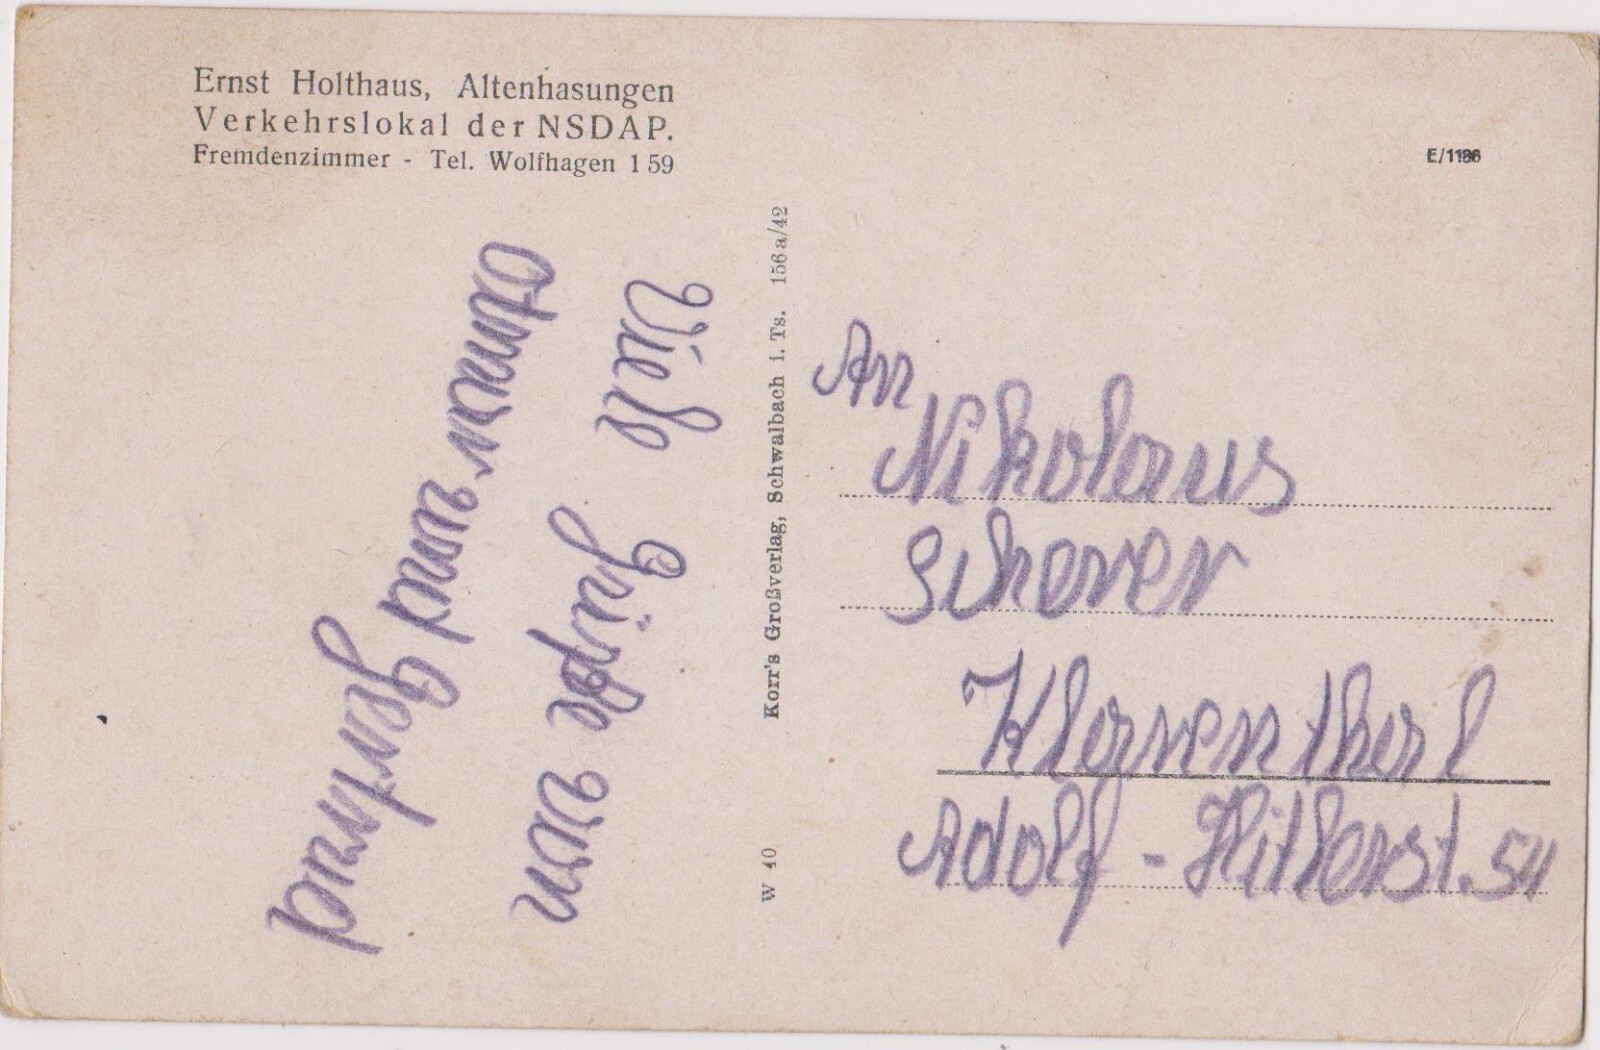 Ernst Holthaus, Altenhasungen
Verkehrslokal der NSDAP.
Fremdenzimmer - Tel. Wolfhagen 159
E/1186
Viele Grüße von
und Gertrud
W 40 Korr's Großverlag, Schwalbach i. Ts. 156a/42
An
Nikolaus
Scherer
Klarenthal
Adolf-Hitlerst. 54